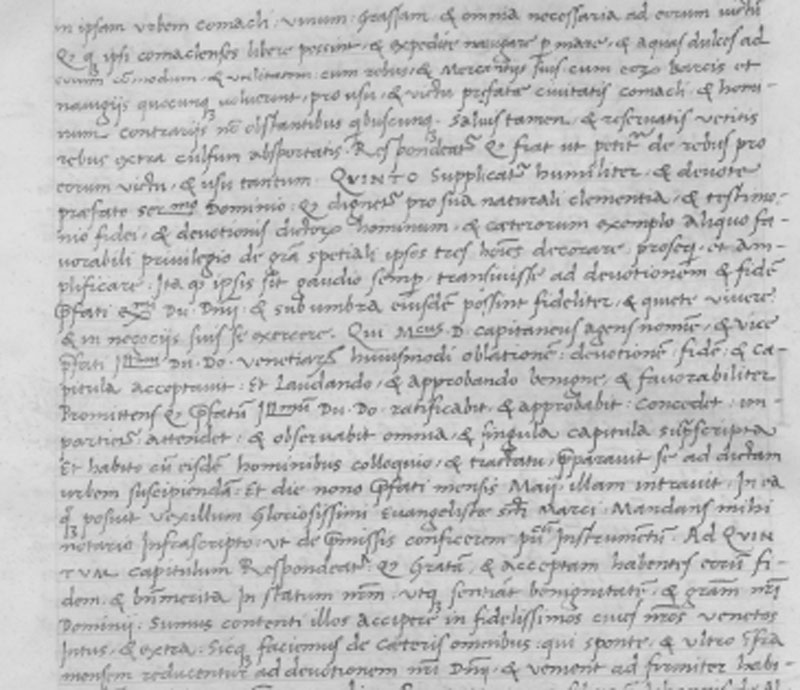 in ipsam urbem comacli: vinum: Grassam: & omnia necessaria ad eorum victū
Et q ipsi comaclenses libere possint, & expedite navigare p mare, & aquas dulces ad
eorum cōmodum, & utilitatem: cum rebus, & Mercantijs suis cum eorum Barcis et
navigijs quocunq voluerint, pro usu, & victu prefate civitatis comacli, & homi-
num contrarijs nō obstantibus qbuscunq. Salvis tamen & reservatis vetitis
rebus extra culfum absportatis. Respondeatr Q fiat ut petitr de rebus pro
eorum victu, & usu tantum. QUINTO Supplicatr humiliter, & devote
præfato Sermo Dominio: Q dignetr pro sua naturali clementia, & testimo-
nio fidei, & devotionis dictorum hominum, & cæterorum exemplo aliquo fa-
vorabili privilegio de grā spetiali ipsos tres hoīes decorare, proseq, et am-
plificare. Ita q ipsis sit gaudio semp transivisse ad devotionem & fidē
pfati Du: Dnij: & sub umbra eiusdē possint fideliter, & quiete vivere
& in negocijs suis se exercere. Qui Mcus D. capitaneus agens nomīe, & vice
pfati Illmi Du: Do. venetiarum huiusmodi oblationē: devotionē, fidē: & ca-
pitula acceptavit: Et Laudando, & approbando benigne, & favorabiliter
Promittens Q pfatū Illmū Du: Do: ratificabit, & approbabit: Concedet: im-
partietr attendet: & observabit omnia, & singula capitula supscripta
Et habito cū eisdē hominibus colloquio, & tractatu, pparavit se ad dictam
urbem suscipiendā: Et die nono pfati mensis Maij illam intravit: In ea
q posuit vexillum Gloriosissimi Evangeliste Sti Marci: Mandans mihi
notario Infrascripto: ut de pmissis conficerem Instrumentū: Ad QUIN
TUM capitulum Respondeatr: Q Gratā, & acceptam habentes eorū fi-
dem, & bnmerita In statum nrm, utq sentiāt benignitatē, & gram nri
Dominij: Sumus contenti illos accipere in fidelissimos cives nros venetos
Intus, & extra. Sicq faciemus de Cæteris omnibus: qui sponte, & ultro Ifra
mensem reducentur ad devotionem nri Dnij, & venient ad firmiter habi-